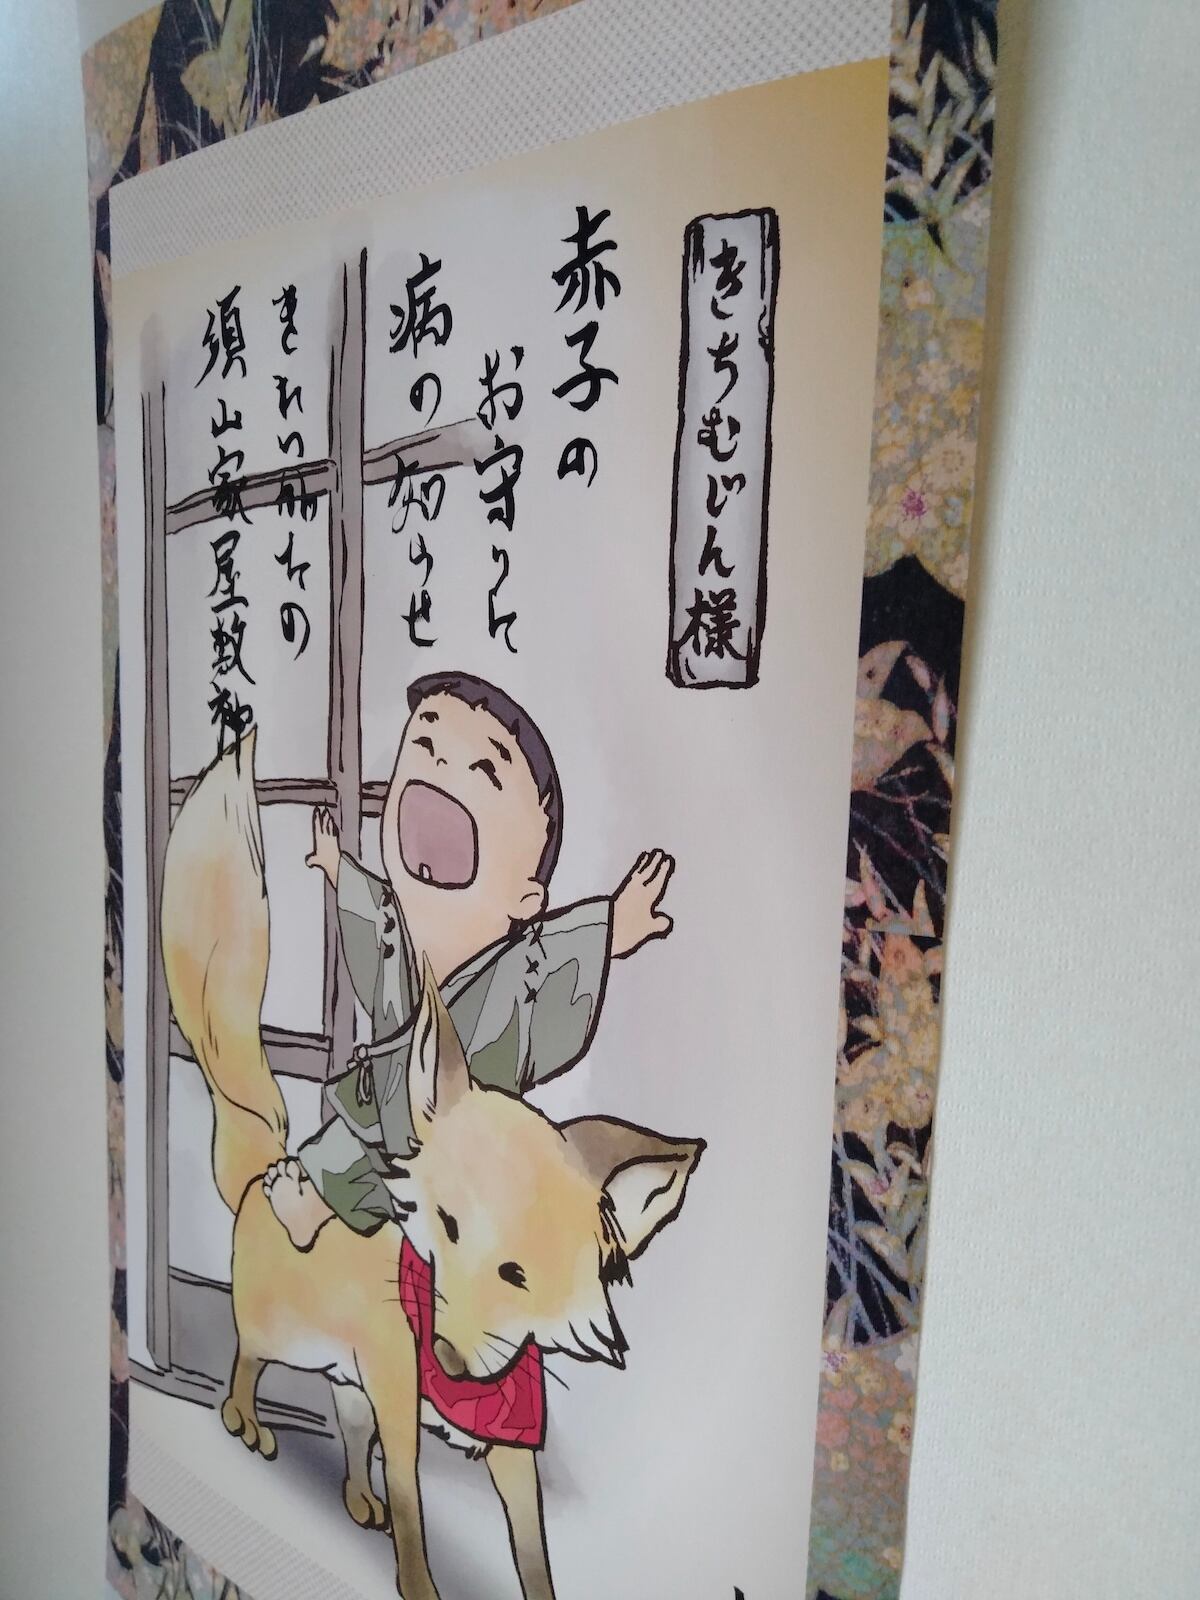 きちむじん様
赤子の
お守りに
病の知らせ
きれい の
須山家屋敷神